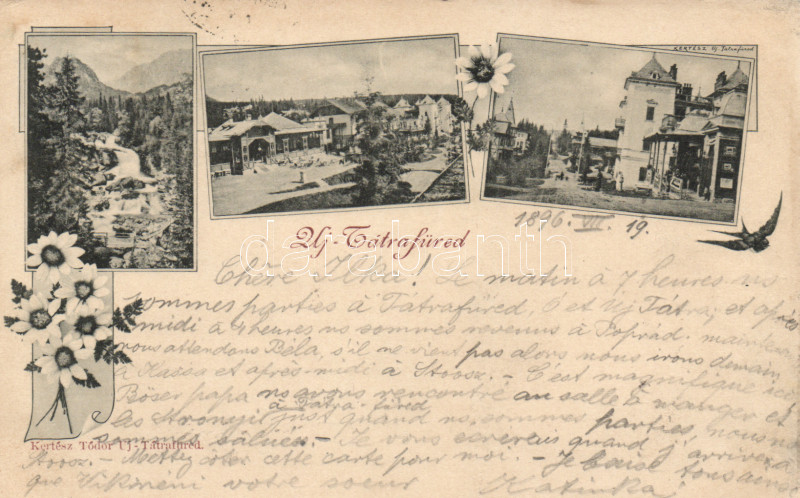 KERTÉSZ Uj Tátrafüred
Uj-Tátrafüred
1896. VII. 19.
darabanth
Chère Ilka! Le matin à 7 heures ns
sommes parties à Tátrafüred, O et Uj Tátra, et après
midi à 4 heures ns sommes revenus à Poprád. mainten
nous attendons Béla, s'il ne vient pas alors nous irons demain
à Kassa et après-midi à Stoosz. - C'est magnifique ici
Böser papa ns avons rencontré au salle à manger et
à Tátra-füred
les Stronyit just quand ns sommes parties, nous ns
saluées. - Je vous écrirerus quand j'arriverai
Stoosz. - Mettez côter cette carte pour moi. - Je baise tous ainsi
que votre soeur Katinka
Kertész Tódor Uj-Tátrafüred.